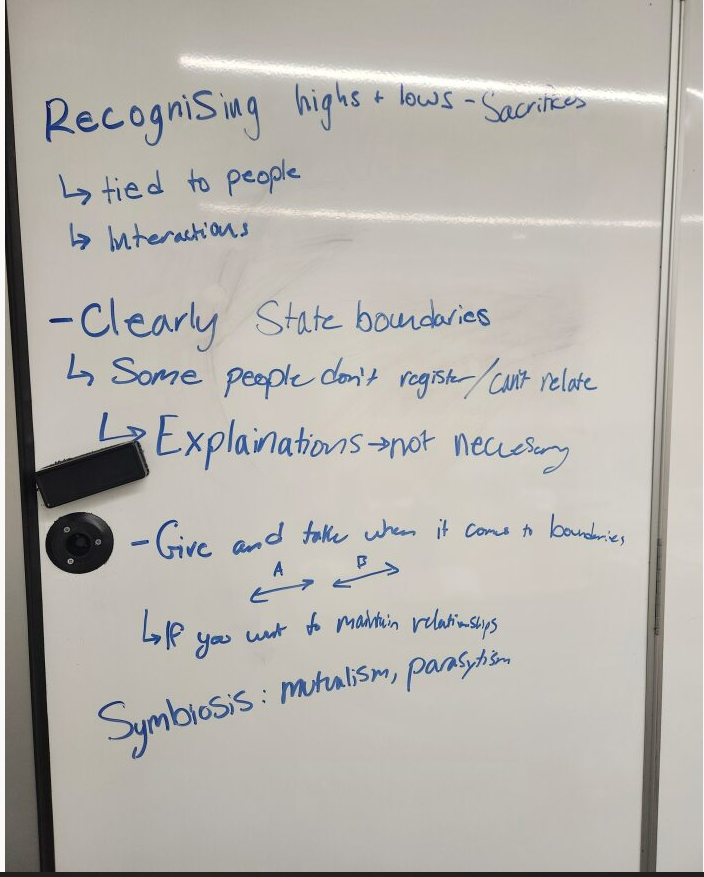 Recognising highs + lows - Sacrifices
↳ tied to people
↳ Interactions
- Clearly State boundaries
↳ Some people don't register/can't relate
↳ Explainations → not neccesary
- Give and take when it comes to boundaries
A B
↳ If you want to maintain relationships
Symbiosis: mutualism, parasytism